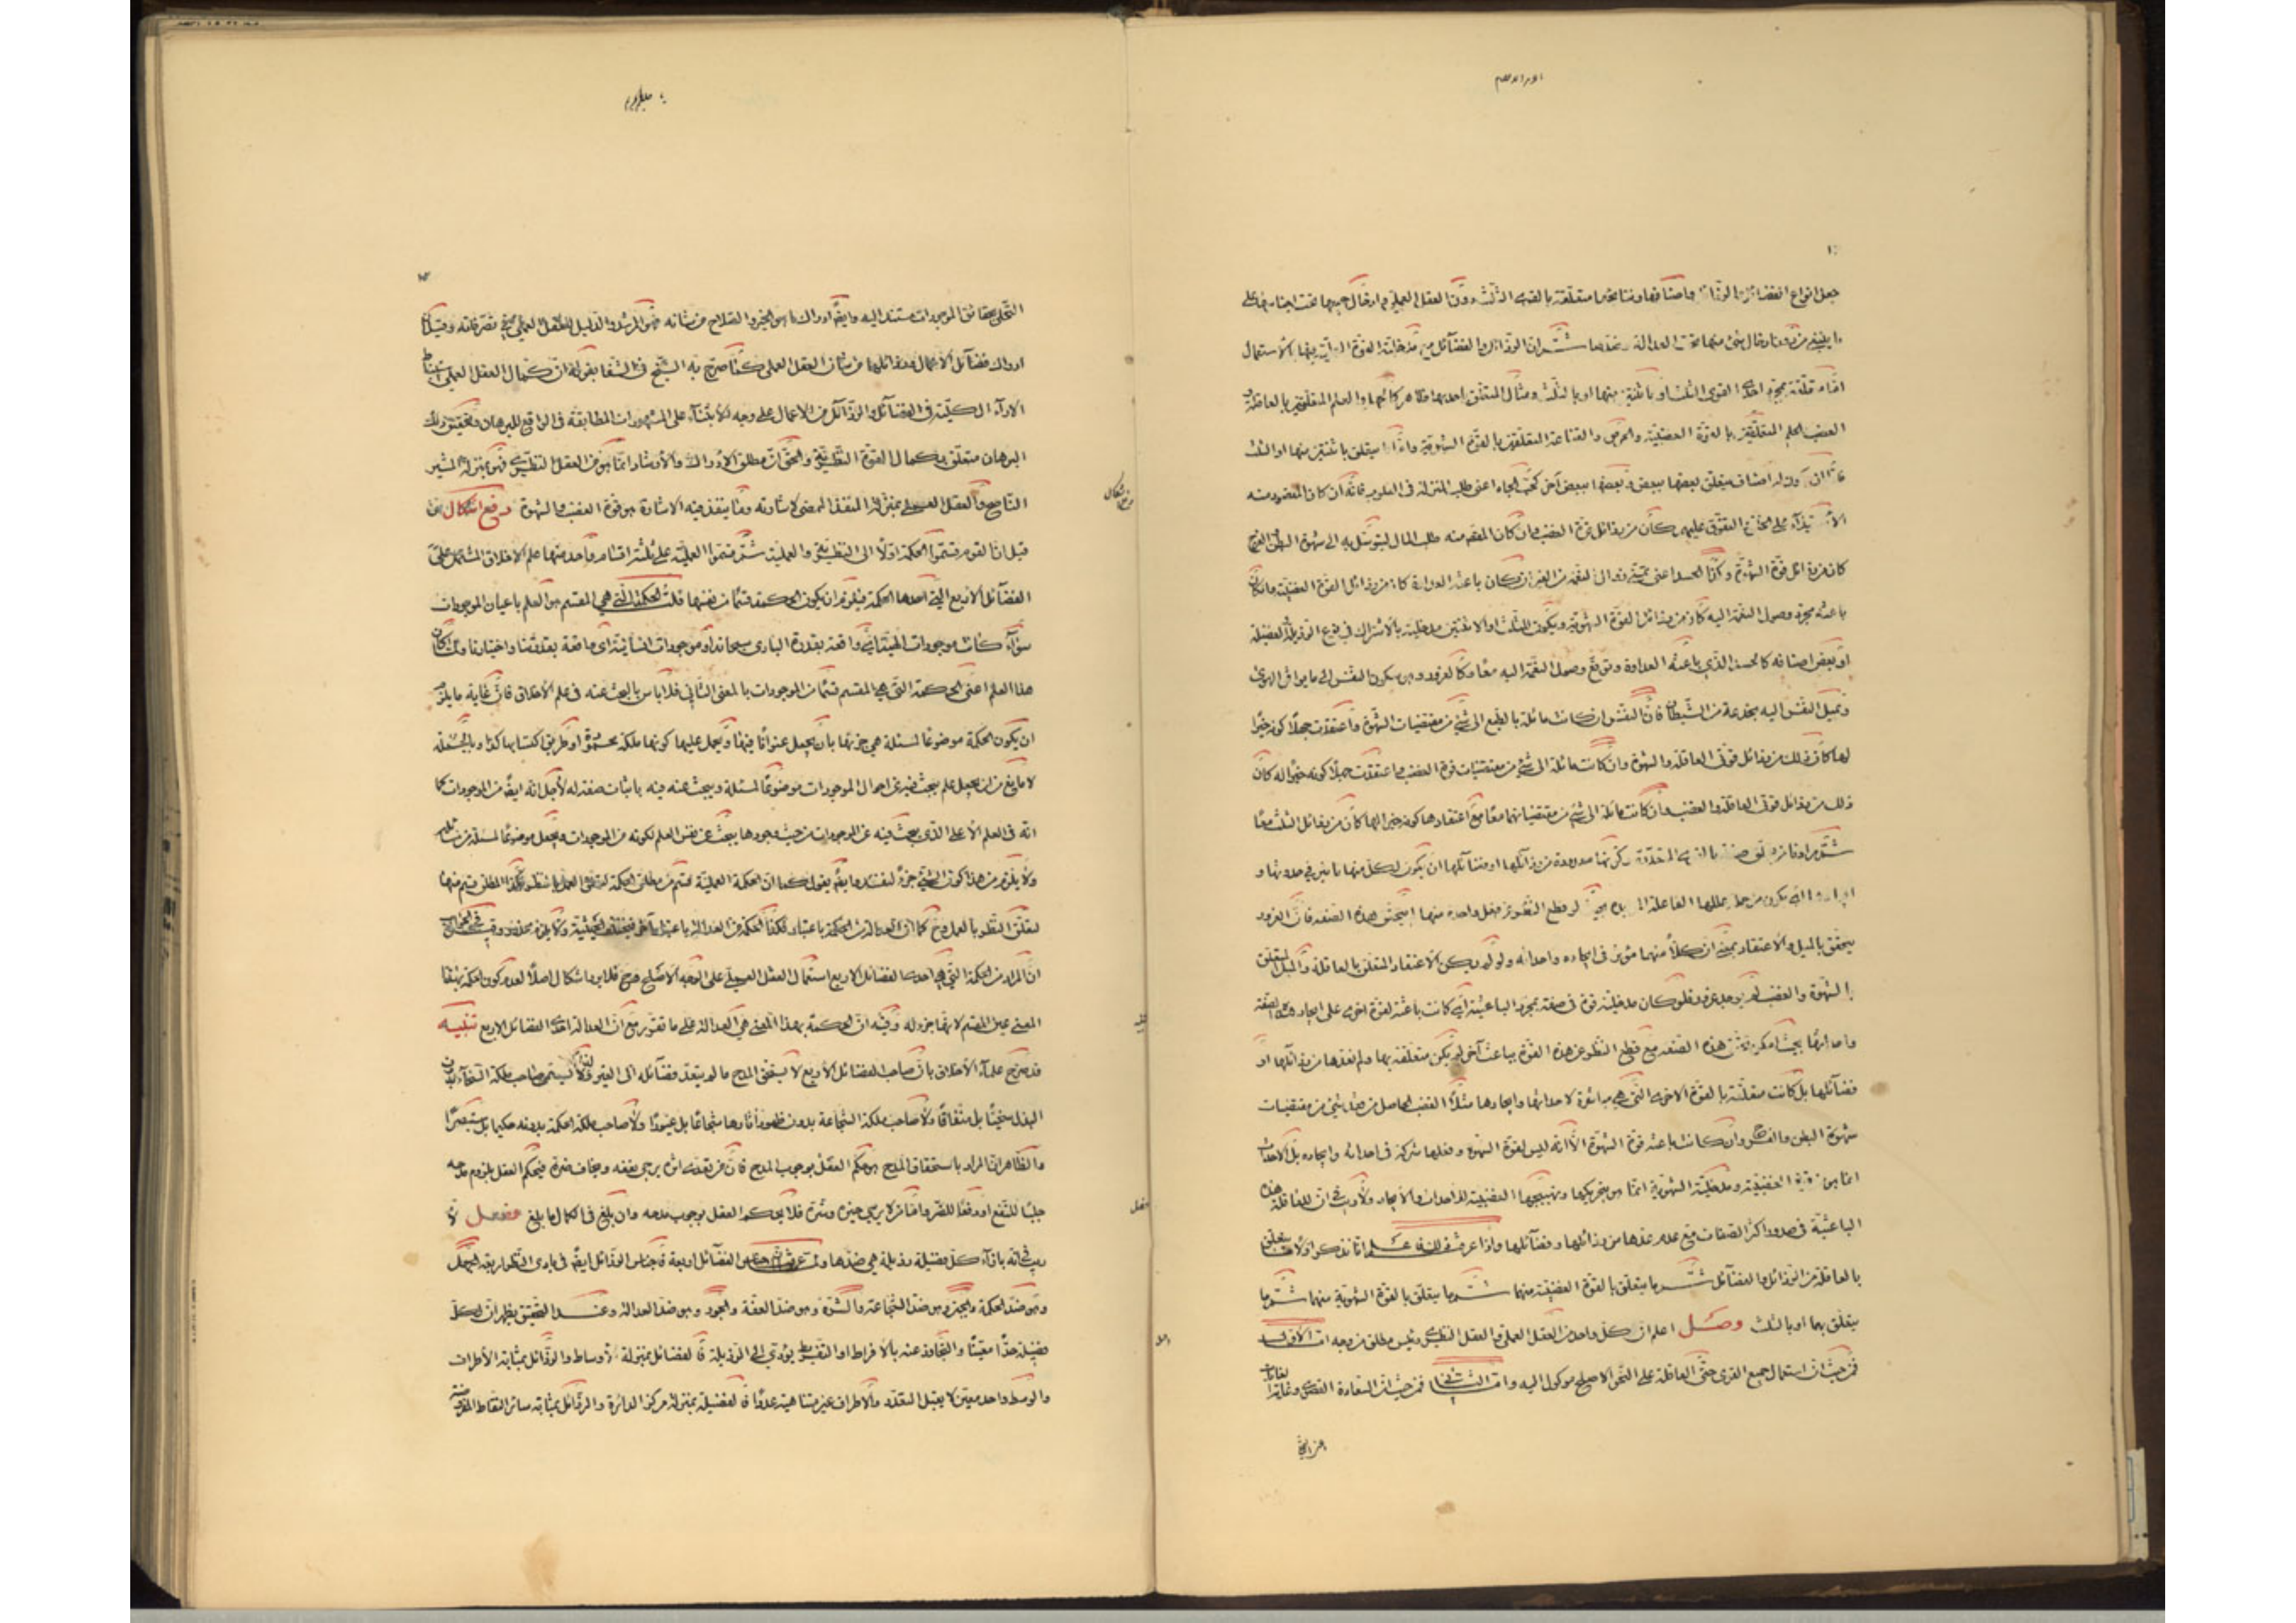 جعل انواع الفضائل والرذائل واصنافها ونتائجها متعلقة بالقوى الثلث دون العقل العملي وادخال جميعها تحت اجناسها على
ما ينبغي من دون ادخال شئ منها تحت العدالة وضدها ثم ان الرذائل والفضائل من مدخلية القوة التي بينها الاستعمال
امّا متعلقة بمجرد احدى القوى الثلث او باثنتين منها او بالثلث ومثال المتعلق باحديها ظاهر كالجهل والعلم المتعلقين بالعاقلة و
الغضب الحلم المتعلقين بالقوة الغضبية والحرص والقناعة المتعلقين بالقوة الشهوية وامّا ما يتعلق باثنتين منها او الثلث
فامّا ان يكون له اصناف يتعلق بعضها ببعض وبعضها ببعض آخر كحب الجاه اعنى طلب المنزلة في القلوب فانه ان كان المقصود منه
الاستيلاء على الخلق والتفوق عليهم كان من رذائل قوة الغضب وان كان المقصد منه طلب المال ليتوسل به الى شهوة البطن والفرج
كان من رذائل قوة الشهوة وكذا الحسد اعنى تمنى زوال النعمة من الغير ان كان باعثه العداوة كان من رذائل القوة الغضبية وان كان
باعثه مجرد وصول النعمة اليه كان من رذائل القوة الشهوية ويكون للثلث او الاثنتين مدخلية بالاشتراك في نوع الرذيلة والفضيلة
او بعض اصنافه كالحسد الذي باعثه العداوة وتوقع وصول النعمة اليه معا وكالغرور وهو سكون النفس الى ما يوافق الهوى
وتميل النفس اليه بخدعة من الشيطان فان النفس ان كانت مائلة بالطبع الى شئ من مقتضيات الشهوة واعتقدت جهلا كونه خيرا
لها كان ذلك من رذائل قوتى العاقلة والشهوة وان كانت مائلة الى شئ من مقتضيات قوة الغضب واعتقدت جهلا كونه خيرا له كان
ذلك من رذائل قوتى العاقلة والغضب وان كانت مائلة الى شئ من مقتضياتهما معا مع اعتقادها كونه خيرا لها كان من رذائل الثلث معا
ثم مرادنا من تعلق صفة بالقوى المتعددة وكونها معدودة من رذائلها او فضائلها ان يكون لكل منها تاثير في حدوثها و
ايجادها اى يكون من جملة عللها الفاعلة الموجدة بحيث لو قطع النظر عن فعل واحدة منها لم يتحقق هذه الصفة فان الغرور
يتحقق بالميل والاعتقاد بمعنى ان كلا منهما مؤثر في ايجاده واحداثه ولو لم يكن الاعتقاد المتعلق بالعاقلة والميل المتعلق
بالشهوة والغضب لم يوجد غرور فلو كان مدخلية قوة في صفة بمجرد الباعثية اى كانت باعثة لقوة اخرى على ايجاد هذه الصفة
واحداثها بحيث امكن تحقق هذه الصفة مع قطع النظر عن هذه القوة بباعث آخر لم يكن متعلقة بها ولم نعدها من رذائلها او
فضائلها بل كانت متعلقة بالقوة الاخرى التى هي مباشرة لاحداثها وايجادها مثلا الغضب الحاصل من طلب شئ من مقتضيات
شهوة البطن والفرج وان كانت باعثه قوة الشهوة الا انه ليس لقوة الشهوة وفعلها شركة في احداثه وايجاده بل الاحداث
انما هو من القوة الغضبية ومدخلية الشهوية انما هو بتحريكها وتهييجها الغضبية للاحداث والايجاد ولا ريب في ان للعاقلة هذه
الباعثية في صدور اكثر الصفات مع عدم عدّها من رذائلها وفضائلها واذا عرفت ذلك فاعلم انا نذكر اولا ما يتعلق
بالعاقلة من الرذائل والفضائل ثم ما يتعلق بالقوة الغضبية منهما ثم ما يتعلق بالقوة الشهوية منهما ثم ما
يتعلق بهما او بالثلث وصل اعلم ان كل واحد من العقل العملي والعقل النظري رئيس مطلق من وجه امّا الاول
فمن حيث ان استعمال جميع القوى حتى العاقلة على النحو الاصلح موكول اليه وامّا الثاني فمن حيث ان السعادة القصوى وغاية الغايات
اعنى التحلى
التحلى بحقائق الموجودات مستند اليه وايضا ادراك ما هو الخير والصلاح من شانه فهو المرشد والدليل للعقل العملي في تصرفاته وقيل ان
ادراك فضائل الاعمال ورذائلها من شان العقل العملي كما صرح به الشيخ في الشفا بقوله ان كمال العقل العملي استنباط
الآراء الكلية في الفضائل والرذائل من الاعمال على وجه الابتناء على المشهورات المطابقة في الواقع للبرهان وتحقيق ذلك
البرهان متعلق بكمال القوة النظرية والحق ان مطلق الادراك والارشاد انما هو من العقل النظري فهو بمنزلة المشير
الناصح والعقل العملي بمنزلة المنفذ الممضى لاشارته وما ينفذ فيه الاشارة هو قوة الغضب والشهوة دفع اشكال ان
قيل ان القوم قسموا الحكمة اولا الى النظرية والعملية ثم قسموا العملية على ثلثة اقسام واحد منها علم الاخلاق المشتمل على
الفضائل الاربع التي احدها الحكمة فيلزم ان يكون الحكمة قسما من نفسها قلت الحكمة التي هي المقسم هو العلم باعيان الموجودات
سواء كانت موجودات الهية اى واقعة بقدرة الباري سبحانه او موجودات انسانية اى واقعة بقدرتنا واختيارنا ولما كان
هذا العلم اعنى الحكمة التي هي المقسم قسما من الموجودات بالمعنى الثاني فلا باس بالبحث عنه في علم الاخلاق فان غاية ما يلزم
ان يكون الحكمة موضوعا لمسئلة هي جزئها بان يجعل عنوانا فيها ويحمل عليها كونها ملكة محمودة او طريق اكتسابها كذا وبالجملة
لا مانع من ان يجعل علم يبحث فيه عن احوال الموجودات موضوعا لمسئلة ويبحث عنه فيه باثبات صفة له لاجل انه ايضا من الموجودات كما
انه في العلم الاعلى الذي يبحث فيه عن الموجودات من حيث وجودها يبحث عن نفس العلم لكونه من الموجودات ويجعل موضوعا لمسئلة من مسائله
ولا يلزم من هذا كون الشئ جزء لنفسه وايضا نقول كما ان الحكمة العملية قسم من مطلق الحكمة لتعلق العمل بالنظر فكذا المطلق قسم منها
لتعلق النظر بالعمل وح كما ان العدالة من الحكمة باعتبار فكذا الحكمة من العدالة باعتبار آخر فيختلف الحيثية ولا يلزم محذور وقيل في الجواب
ان المراد من الحكمة التي هي احدى الفضائل الاربع استعمال العقل العملي على الوجه الاصلح وح فلا يرد اشكال اصلا لعدم كون الحكمة بهذا
المعنى عين المقسم لانها جزء له وفيه ان الحكمة بهذا المعنى هي العدالة على ما تقرر مع ان العدالة احدى الفضائل الاربع تنبيه
قد صرح علماء الاخلاق بان صاحب الفضائل الاربع لا يستحق المدح ما لم يتعد فضائله الى الغير ولذا لا يسمى صاحب ملكة السخاء بدون
البذل سخيا بل منفاقا ولا صاحب ملكة الشجاعة بدون ظهور آثارها شجاعا بل غيورا ولا صاحب ملكة الحكمة بدونه حكيما بل مستبصرا
والظاهر ان المراد باستحقاق المدح هو حكم العقل بوجوب المدح فان من تعدى اثره يرجى نفعه ويخاف ضره فيحكم العقل بلزوم مدحه
جلبا للنفع او دفعا للضرر وامّا من لا يرجى خيره وشره فلا يحكم العقل بوجوب مدحه وان بلغ في الكمال ما بلغ فصل لا
ريب في انه بازاء كل فضيلة رذيلة هي ضدها ولما عرفت ان اجناس الفضائل اربعة فاجناس الرذائل ايضا في بادى النظر اربعة الجهل
وهو ضد الحكمة والجبن وهو ضد الشجاعة والشره وهو ضد العفة والجور وهو ضد العدالة وعند التحقيق يظهر ان لكل
فضيلة حدا معينا والتجاوز عنه بالافراط او التفريط يؤدي الى الرذيلة فالفضائل بمنزلة الاوساط والرذائل بمثابة الاطراف
والوسط واحد معين لا يقبل التعدد والاطراف غير متناهية عددا فالفضيلة بمنزلة مركز الدائرة والرذائل بمثابة سائر النقاط المفروضة